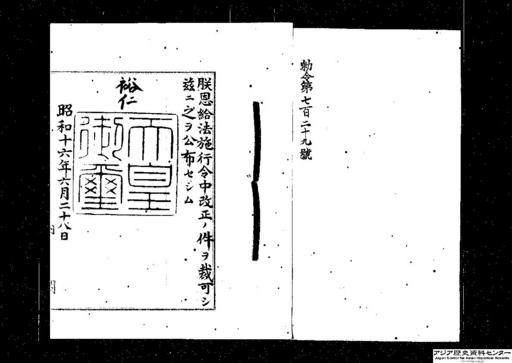 勅令第七百二十九號
朕恩給法施行令中改正ノ件ヲ裁可シ
玆ニ之ヲ公布セシム
裕仁
天皇
御璽
昭和十六年六月二十八日
アジア歴史資料センター
Japan Center for Asian Historical Records